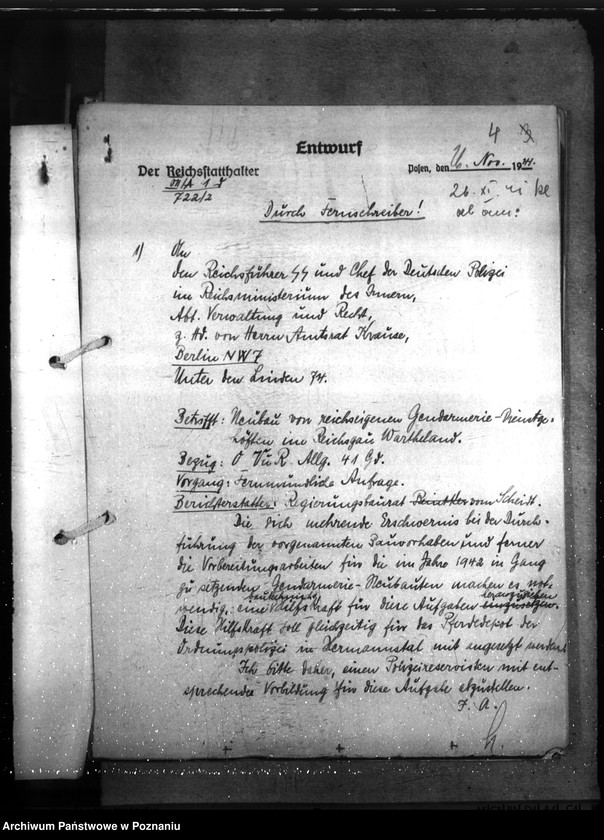 4
Entwurf
Der Reichsstatthalter
Posen, den 26. Nov. 1941.
III/A 1 d
722/2
26. XI. 41
Durch Fernschreiber!
ab
1) An
den Reichsführer SS und Chef der Deutschen Polizei
im Reichsministerium des Innern,
Abt. Verwaltung und Recht,
z. Hd. von Herrn Amtsrat Krause,
Berlin NW 7
Unter den Linden 74.
Betrifft: Neubau von reichseigenen Gendarmerie-Dienstge-
höften im Reichsgau Wartheland.
Bezug: O VuR. Allg. 41 Gd.
Vorgang: Fernmündliche Anfrage.
Berichterstatter: Regierungsbaurat vom Scheidt.
Die sich mehrende Erschwernis bei der Durch-
führung der vorgenannten Bauvorhaben und ferner
die Vorbereitungsarbeiten für die im Jahre 1942 in Gang
zu setzenden Gendarmerie-Neubauten machen es not-
wendig, eine bautechnische Hilfskraft für diese Aufgaben heranzuziehen einzusetzen.
Diese Hilfskraft soll gleichzeitig für das Pferdedepot der
Ordnungspolizei in Hermannstal mit angesetzt werden.
Ich bitte daher, einen Polizeireservisten mit ent-
sprechender Vorbildung für diese Aufgabe abzustellen.
I. A.
Archiwum Państwowe w Poznaniu